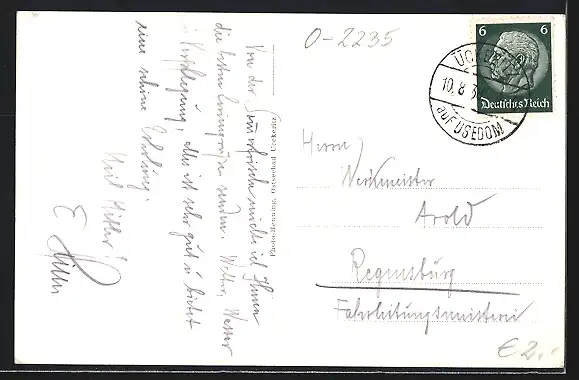 Von der Sommerfrische möchte ich Ihnen
die besten Feriengrüße senden. Wetter, Wasser
u. Verpflegung, alles ist sehr gut u. bietet
eine schöne Erholung.
Heil Hitler!
E
Photo-Henning, Ostseebad Ueckeritz
O-2235
6 6
Deutsches Reich
ÜCKERITZ
10.8.3
auf USEDOM
Herrn
Werkmeister
Arold
Regensburg
Fahrleitungsmeisterei
€ 2,-